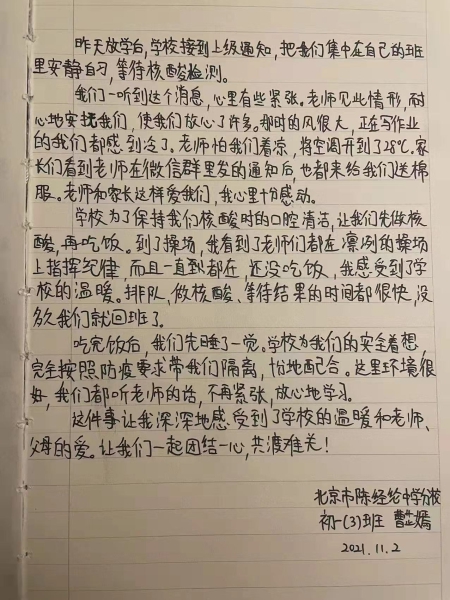 昨天放学后,学校接到上级通知,把我们集中在自己的班
里安静自习,等待核酸检测。
我们一听到这个消息,心里有些紧张。老师见此情形,耐
心地安抚我们,使我们放心了许多。那时的风很大,正在写作业
的我们都感到冷了。老师怕我们着凉,将空调开到了28℃。家
长们看到老师在微信群里发的通知后,也都来给我们送棉
服。老师和家长这样爱我们,我心里十分感动。
学校为了保持我们核酸时的口腔清洁,让我们先做核
酸,再吃饭。到了操场,我看到了老师们都在凛冽的操场
上指挥纪律,而且一直到都在,还没吃饭,我感受到了学
校的温暖。排队,做核酸、等待结果的时间都很快,没
多久我们就回班了。
吃完饭后,我们先睡了一觉。学校为我们的安全着想,
完全按照防疫要求带我们隔离,恰地配合。这里环境很
好,我们都听老师的话,不再紧张,放心地学习。
这件事让我深深地感受到了学校的温暖和老师、
父母的爱。让我们一起团结一心,共渡难关!
北京市陈经纶中学分校
初一(3)班 曹芷嫣
2021.11.2